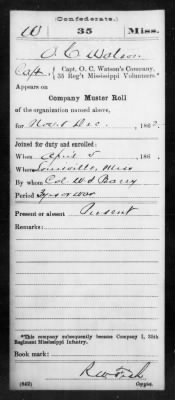 (Confederate.)
W 35 Miss.
O. C. Watson
Capt, Capt. O. C. Watson's Company,
35 Reg't Mississippi Volunteers.*
Appears on
Company Muster Roll
of the organization named above,
for Nov & Dec, 1862.
Joined for duty and enrolled:
When April 5, 186 .
Where Louisville, Miss
By whom Col. W S Barry
Period 3 yrs or war
Present or absent Present
Remarks:
*This company subsequently became Company I, 35th
Regiment Mississippi Infantry.
Book mark:
R W Fish
(642) Copyist.